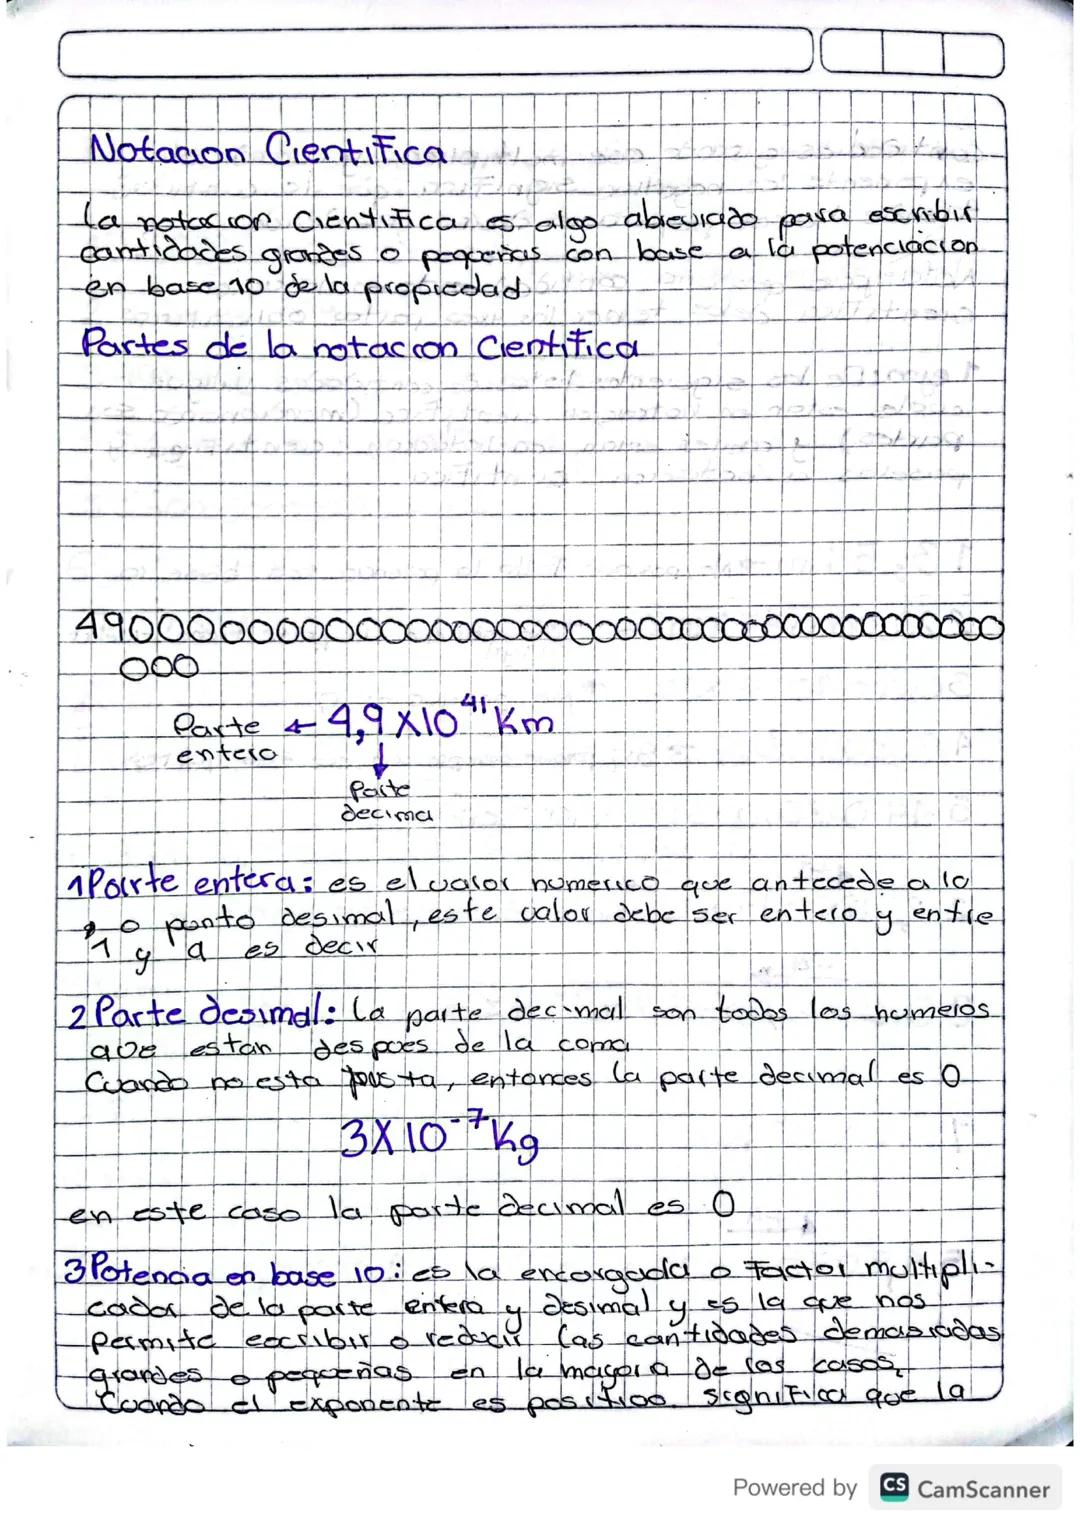 Notacion Cientifica
La notacion Cientifica es algo abreviado para escribir
cantidades grandes o pequeñas con base a la potenciacion
en base 10 de la propiedad
Partes de la notacion Cientifica
490000000000000000000000000000000000000
000
Parte ← 4,9 X10⁴¹ Km
entera
↓
Parte
decima
1 Parte entera: es el valor numerico que antecede a la
, o punto desimal, este valor debe ser entero y entre
1 y 9 es decir
2 Parte desimal: La parte decimal son todos los numeros
que estan despues de la coma
Cuando no esta puesta, entonces la parte decimal es 0
3X10⁻⁷Kg
en este caso la parte decimal es 0
3 Potencia en base 10: es la encargada o Factor multipli-
cador de la parte entera y desimal y es la que nos
permite escribir o reducir las cantidades demasiadas
grandes o pequeñas en la mayoria de los casos,
Cuando el exponente es positivo significa que la
Powered by CS CamScanner